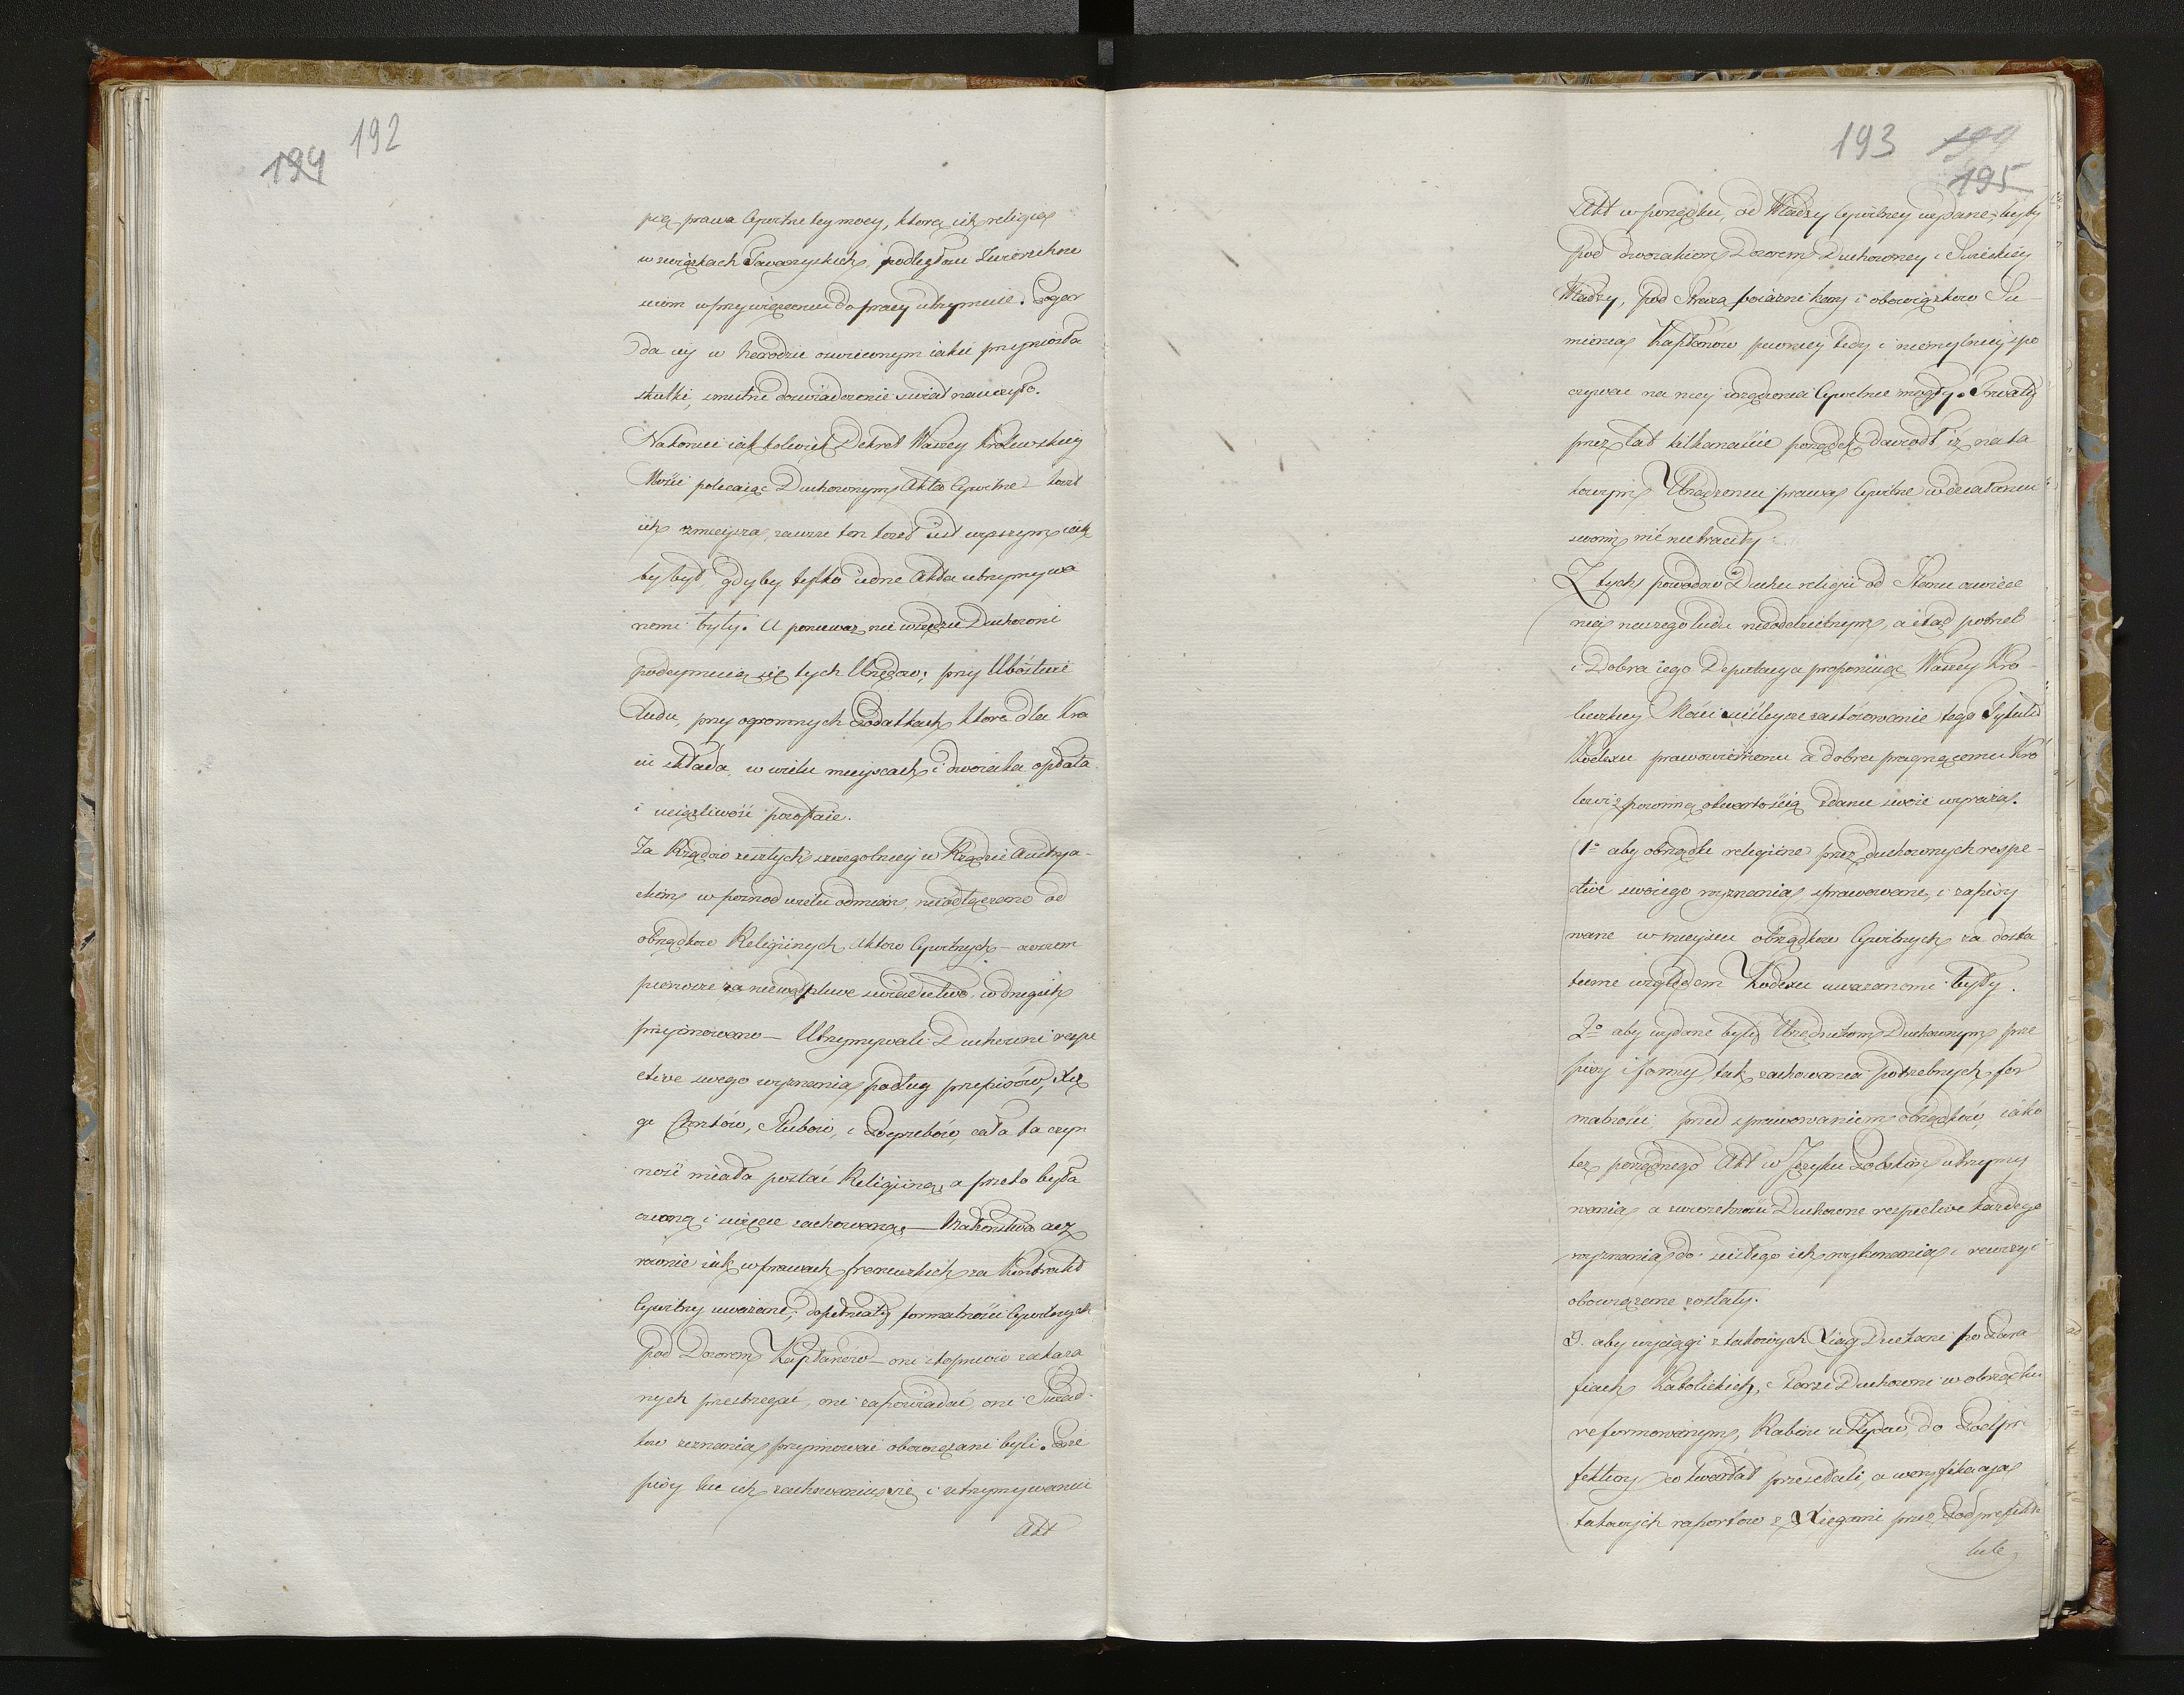 192
194
pią prawa Cywilne tey mocy, którą ich religia
w związkach Towarzyskich, podległości Zwierzchno
sciom w przywiązaniu do pracy utrzymuie. Pogar
da iey w Narodzie oswieconym iakie przyniosła
skutki, smutne doswiadczenie swiat nauczyło.
Nakoniec iak kolwiek Dekret Waszey Krolewskiey
Mości polecaiąc Duchownym Akta Cywilne koszt
ich zmieysza, zawsze ten koszt iest wyzszym iak
by był, gdyby tylko iedne Akta utrzymywa
nemi były. A ponieważ nie wszędzie Duchowni
podeymuią się tych Urzędow; przy Ubóstwie
Ludu, przy ogromnych Podatkach które dla Kra
iu składa, w wielu mieyscach i dwoiaka opłata
i uciążliwość pozostaie.
Za Rządow zeszłych szczegolniey w Rządzie Austrya-
ckim w posrod wielu odmian, nieodłączono od
obrządkow Religiinych Aktow Cywilnych - owszem
pierwsze za niewątpliwe swiadectwo, w drugich
przyimowano - Utrzymywali Duchowni respe
ctive swego wyznania podług przepisów, Xię
ge Chrztów, Slubow, i Pogrzebów, cała ta czyn
ność miała postać Religiiną, a przeto była
czczoną i swięcie zachowaną - Małżenstwa acz
rownie iak w prawach francuzkich za Kontrakt
Cywilny uważane, dopełniały formalności Cywilnych
Pod Dozorem Kapłanow - oni stopniow zakaza
nych przestrzegać, oni zapowiadać, oni Swiad-
kow zeznania przyimować obowiązani byli. Prze
pisy ku ich zachowaniu się i utrzymywaniu
Akt
193 199
195
Akt w porządku, od Władzy Cywilney wydane, były
Pod dwoiakiem Dozorem Duchowney i Swieckiey
Władzy, Pod Strażą boiazni kary i obowiązkow Su-
mienia Kapłanow pewniey tedy i niemylniey spo
czywać na niey urządzenia Cywilne mogły. Trwały
przez lat kilkanaście porządek dowiodł iż na ta
kowym Urządzeniu prawa Cywilne w działaniu
swoim nic nie traciły
Z tych powodow Duchu religii od Stanu oswiece
nia naszego ludu nieoddzielnym, a iego potrzeb
i Dobra iego Deputacya proponuiąc Waszey Kro-
lewskiey Mości ścisleysze zastosowanie tego Tytułu
Kodexu prawowiernemu a dobra pragnącemu Kró
lowi z powinną otwartością zdanie swoie wyraża.
1o aby obrządki religiine przez duchownych respe-
ctive swoiego wyznania sprawowane, i zapisy
wane w mieyscu obrządkow Cywilnych za dosta
teczne względem Kodexu uważanemi były.
2o aby wydane były Urzędnikom Duchownym prze
pisy i formy, tak zachowania potrzebnych for
malności przed sprawowaniem obrządków, iako
też porządnego Akt w Języku Polskim utrzymy
wania a zwierzchności Duchowne respective każdego
wyznania do scisłego ich wykonania i rewizyi
obowiązane zostały.
3. aby wyciągi z takowych Xiąg Dziekani po Para
fiach Katolickich, Starsi Duchowni w obrządku
reformowanym, Rabini u Zydow, do Podpre
fektury co kwartał przesełali, a weryfikacya
takowych raportow z Xięgami przez Podprefekta
lub